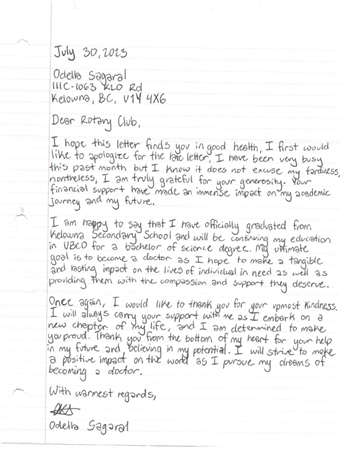 July 30, 2025
Odella Sagaral
111C-1063 KLO Rd
Kelowna, BC, V1Y 4X6
Dear Rotary Club,
I hope this letter finds you in good health, I first would
like to apologize for the late letter, I have been very busy
this past month but I know it does not excuse my tardiness,
nontheless, I am truly grateful for your generosity. Your
financial support have made an immense impact on my academic
journey and my future.
I am happy to say that I have officially graduated from
Kelowna Secondary School and will be continuing my education
in UBCO for a bachelor of science degree. My ultimate
goal is to become a doctor as I hope to make a tangible
and lasting impact on the lives of individual in need as well as
providing them with the compassion and support they deserve.
Once again, I would like to thank you for your upmost kindness.
I will always carry your support with me as I embark on a
new chapter of my life, and I am determined to make
you proud. Thank you from the bottom of my heart for your help
in my future and believing in my potential. I will strive to make
a positive impact on the world as I pursue my dreams of
becoming a doctor.
With warmest regards,
Odella Sagaral